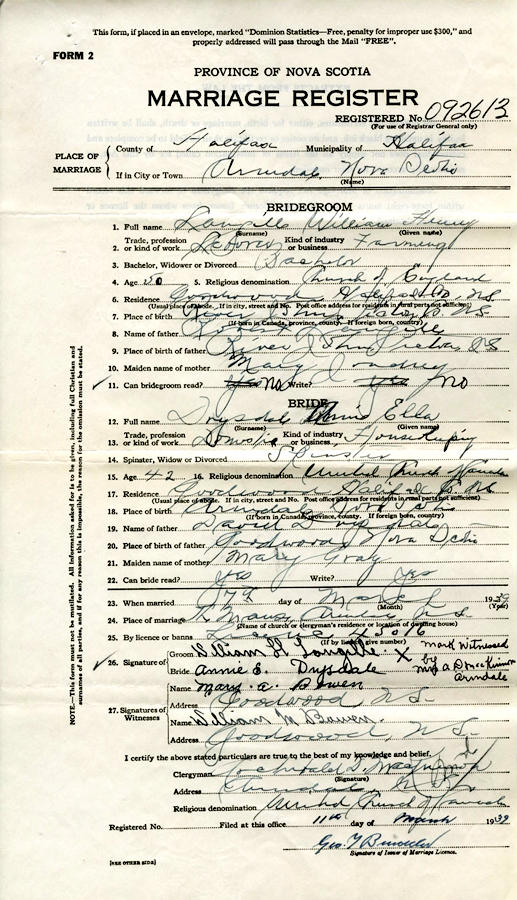 This form, if placed in an envelope, marked "Dominion Statistics—Free, penalty for improper use $300," and
properly addressed will pass through the Mail "FREE".
FORM 2
PROVINCE OF NOVA SCOTIA
MARRIAGE REGISTER
REGISTERED No. 092613
(For use of Registrar General only)
PLACE OF MARRIAGE
County of Halifax Municipality of Halifax
If in City or Town Armdale, Nova Scotia
(Name)
BRIDEGROOM
1. Full name Langille William Henry
(Surname) (Given name)
2. Trade, profession or kind of work Laborer Kind of industry or business Farming
3. Bachelor, Widower or Divorced Bachelor
4. Age 50 5. Religious denomination Church of England
6. Residence Goodwood Halifax Co. N.S.
(Usual place of abode. If in city, street and No. Post office address for residents in rural parts not sufficient)
7. Place of birth River John N.S.
(If born in Canada, province, county. If foreign born, country)
8. Name of father Robert
9. Place of birth of father River John N.S.
10. Maiden name of mother Mary
11. Can bridegroom read? Yes No Write? Yes No
BRIDE
12. Full name Drysdale Annie Ella
(Surname) (Given name)
13. Trade, profession or kind of work Domestic Kind of industry or business Housekeeping
14. Spinster, Widow or Divorced Spinster
15. Age 42 16. Religious denomination United Church of Canada
17. Residence Goodwood Halifax Co. N.S.
(Usual place of abode. If in city, street and No. Post office address for residents in rural parts not sufficient)
18. Place of birth Armdale Nova Scotia
(If born in Canada, province, county. If foreign born, country)
19. Name of father David Drysdale
20. Place of birth of father Goodwood Nova Scotia
21. Maiden name of mother Mary
22. Can bride read? Yes Write? Yes
23. When married day of March 1939
(Month) (Year)
24. Place of marriage Manse, Armdale N.S.
(Name of church or clergyman's residence or location of dwelling house)
25. By licence or banns License 23016
(If by licence give number)
26. Signature of
Groom William H Langille X mark witnessed by Mrs A D MacKinnon Armdale
Bride Annie E. Drysdale
27. Signatures of Witnesses
Name Mary A. Bowen
Address Goodwood, N.S.
Name William M Bowen.
Address Goodwood, N.S.
I certify the above stated particulars are true to the best of my knowledge and belief.
Clergyman Archibald D. MacKinnon
(Signature)
Address Armdale, N.S.
Religious denomination United Church of Canada
Registered No. Filed at this office 11th day of March 1939
Geo.
Signature of Issuer of Marriage Licence.
[SEE OTHER SIDE]
NOTE.—This form must not be mutilated. All information asked for is to be given, including full Christian and
surnames of all parties, and if for any reason this is impossible, the reason for the omission must be stated.